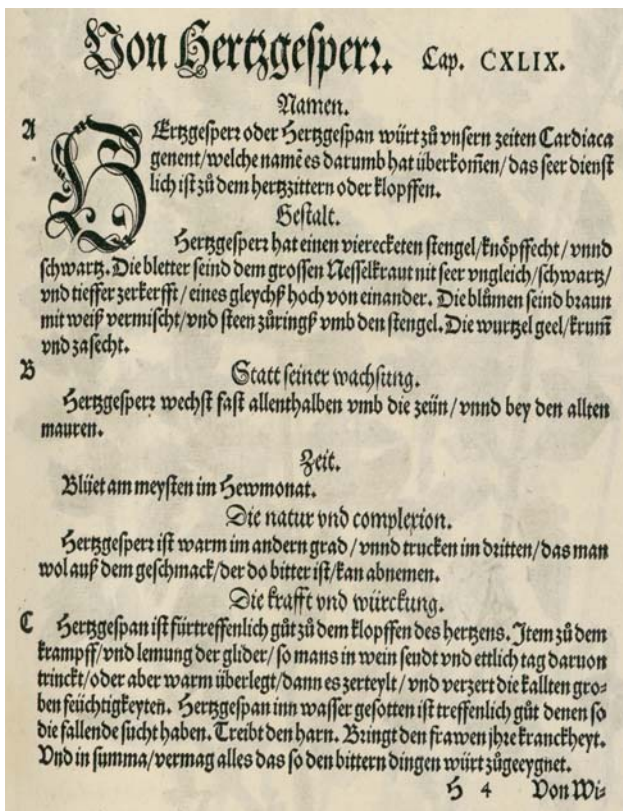 Von Hertzgesperr. Cap. CXLIX.
Namen.
A
HErtzgesperr oder Hertzgespan würt zů vnsern zeiten Cardiaca
genent/welche namē es darumb hat überkom̄en/das seer dienst
lich ist zů dem hertzzittern oder klopffen.
Gestalt.
Hertzgesperr hat einen vierecketen stengel/knöpffecht/vnnd
schwartz. Die bletter seind dem grossen Nesselkraut nit seer vngleich/schwartz/
vnd tieffer zerkerfft/eines gleychß hoch von einander. Die blůmen seind braun
mit weiß vermischt/vnd steen zůringß vmb den stengel. Die wurtzel geel/krum̄
vnd zasecht.
B
Statt seiner wachsung.
Hertzgesperr wechst fast allenthalben vmb die zeün/vnnd bey den allten
mauren.
Zeit.
Blüet am meysten im Hewmonat.
Die natur vnd complexion.
Hertzgesperr ist warm im andern grad/vnnd trucken im dritten/das man
wol auß dem geschmack/der do bitter ist/kan abnemen.
Die krafft vnd würckung.
C
Hertzgespan ist fürtreffenlich gůt zů dem klopffen des hertzens. Item zů dem
krampff/vnd lemung der glider/so mans in wein seudt vnd ettlich tag daruon
trinckt/oder aber warm überlegt/dann es zerteylt/vnd verzert die kallten gro⸗
ben feüchtigkeyten. Hertzgespan inn wasser gesotten ist treffenlich gůt denen so
die fallende sucht haben. Treibt den harn. Bringt den frawen jhre kranckheyt.
Vnd in summa/vermag alles das so den bittern dingen würt zůgeeygnet.
H 4 Von Wi⸗